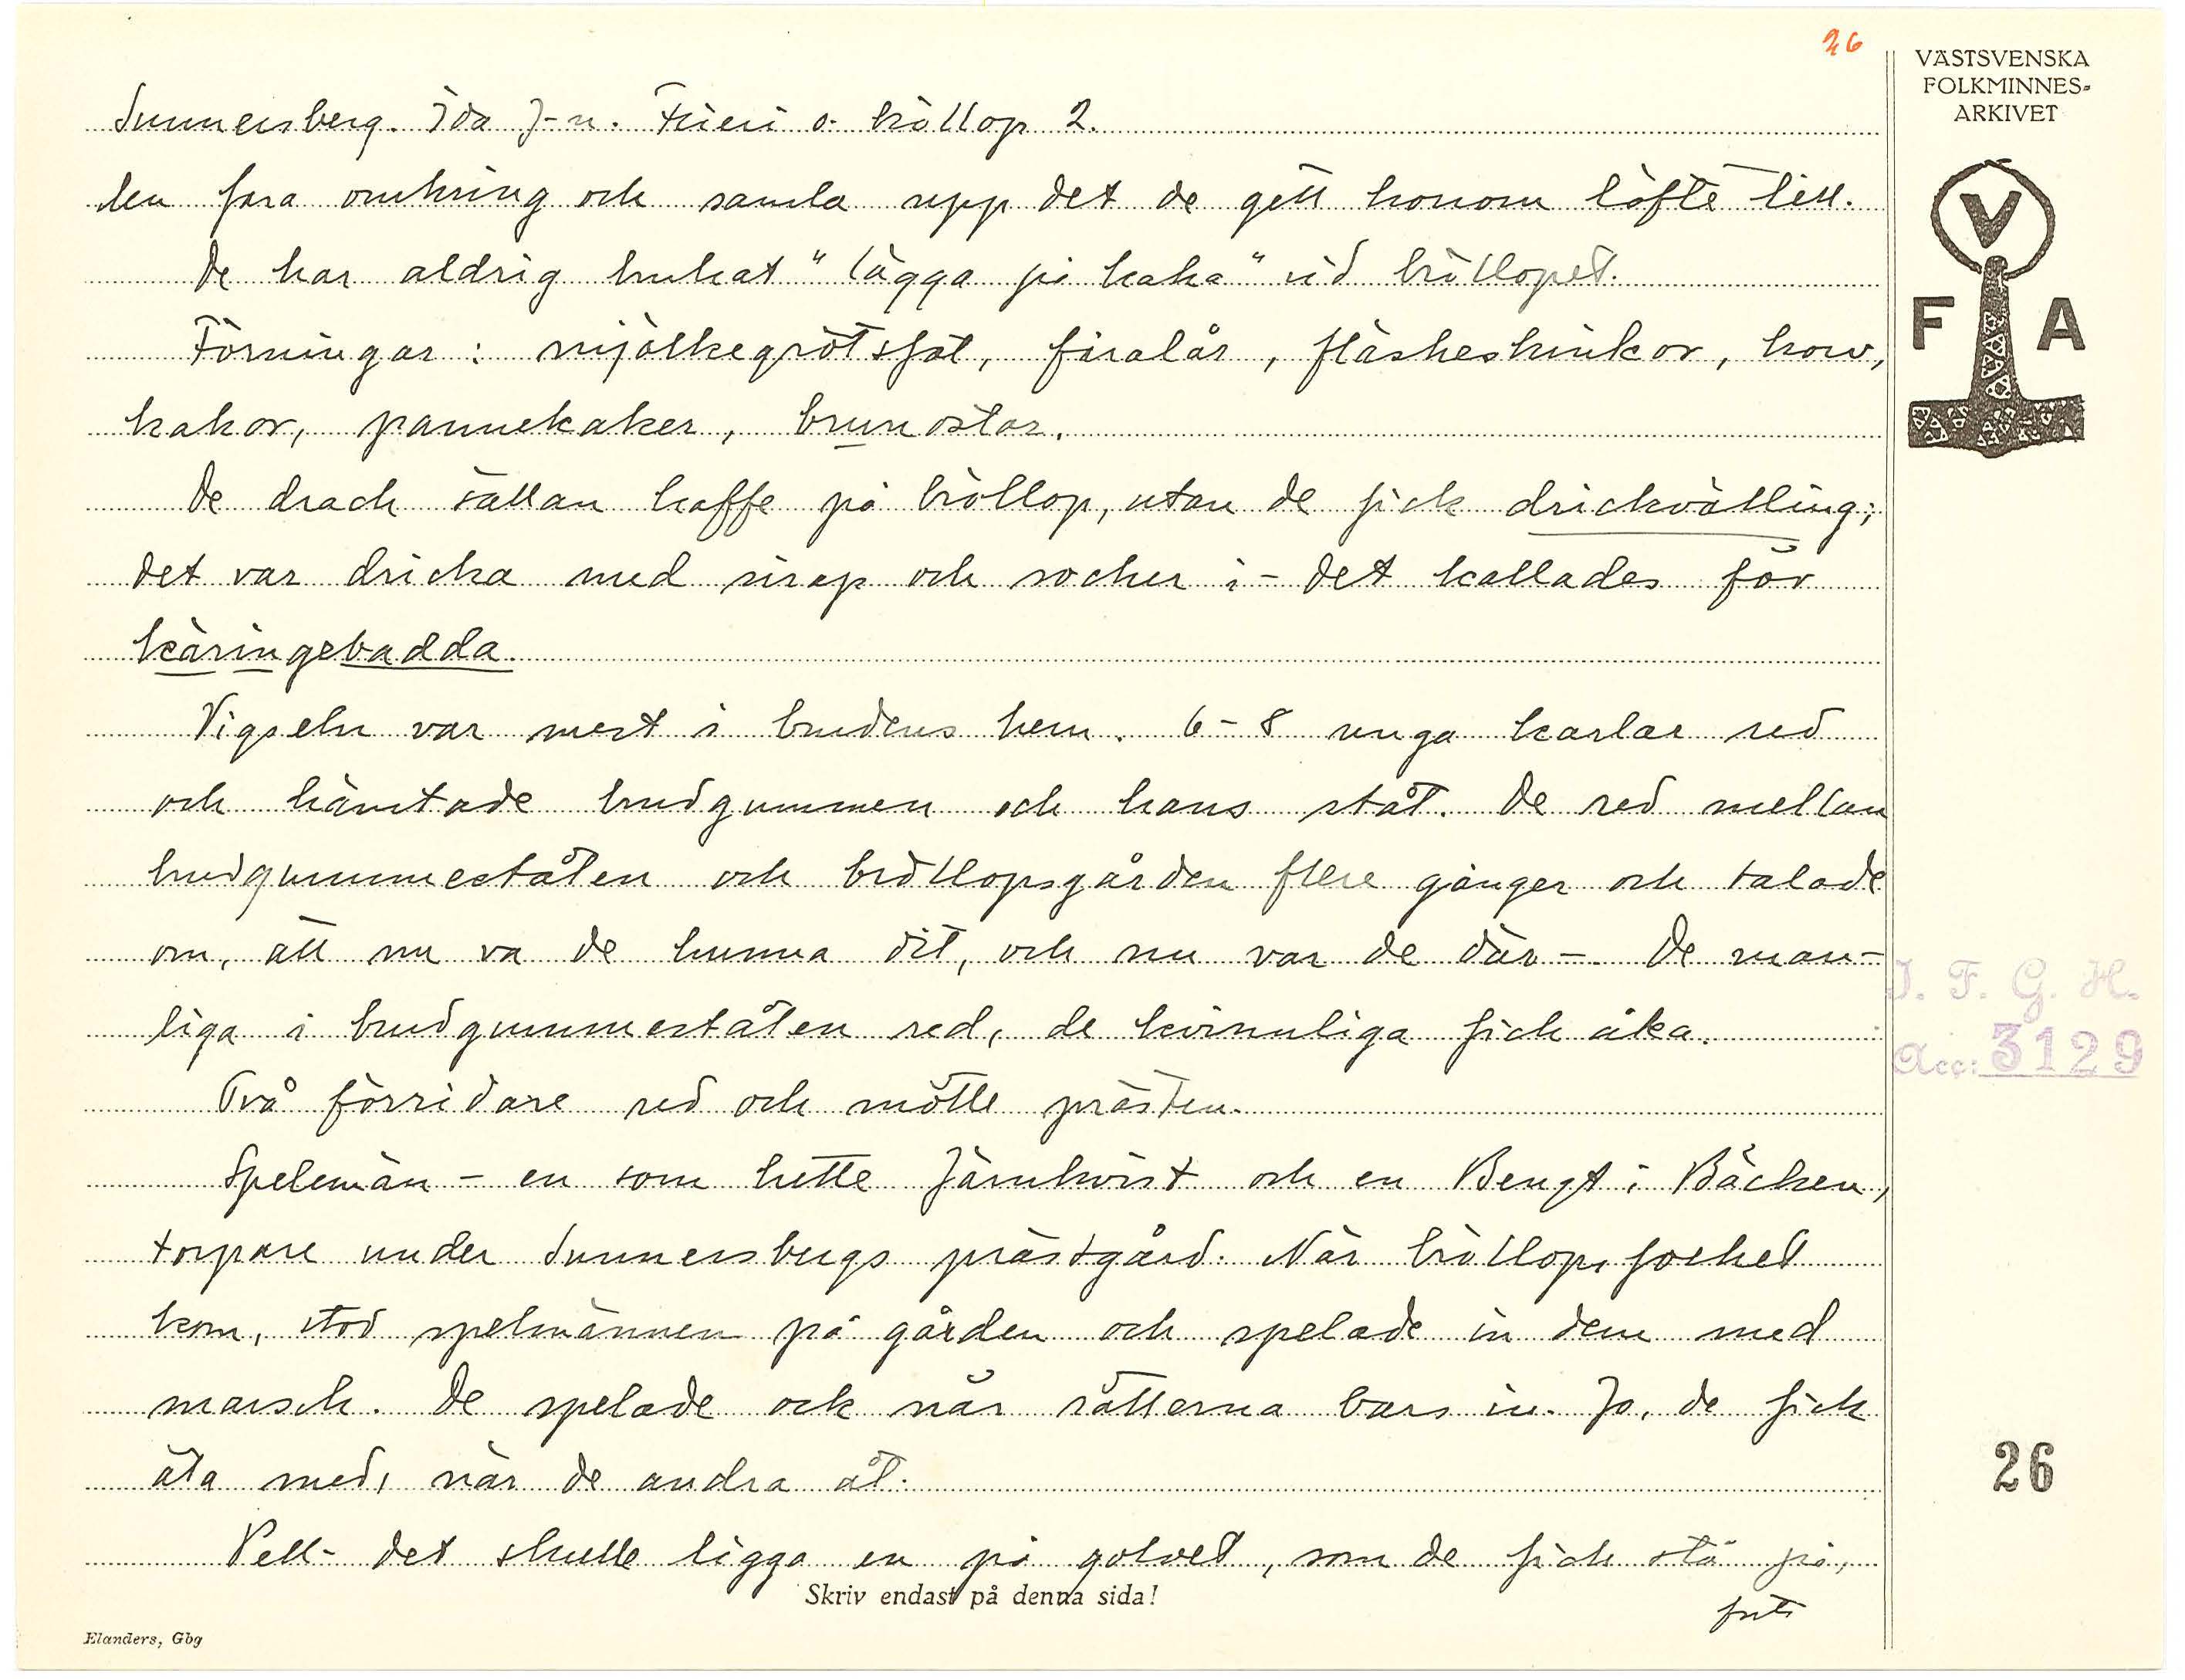 26
VÄSTSVENSKA
FOLKMINNES-
ARKIVET
Sunnersberg. Ida J-n. Frieri o. bröllop 2.
len fara omkring och samla upp det de gett honom löfte till.
De har aldrig brukat "lägga på kaka" vid bröllopet.
Förningar: mjölkegrötsfat, fåralår, fläskeskinkor, korv,
kakor, pannekaker, brunostar.
De drack sällan kaffe på bröllop, utan de fick drickvälling;
det var dricka med sirap och socker i - det kallades för
käringebadda.
Vigseln var mest i brudens hem. 6-8 unga karlar red
och hämtade brudgummen och hans ståt. De red mellan
brudgummeståten och bröllopsgården flere gånger och talade
om, att nu va de hunna dit, och nu var de där -. De man-
liga i brudgummeståten red, de kvinnliga fick åka.
Två förridare red och mötte prästen.
Spelemän - en som hette Järnkvist och en Bengt i Bäcken,
torpare under Sunnersbergs prästgård. När bröllopsfocket
kom, stod spelmännen på gården och spelade in dem med
marsch. De spelade ock när rätterna bars in. Jo, de fick
äta med, när de andra åt.
Pell- det skulle ligga en på golvet, som de fick stå på,
forts
Skriv endast på denna sida!
Elanders, Gbg
V
F A
I. F. G. H.
Acc: 3129
26